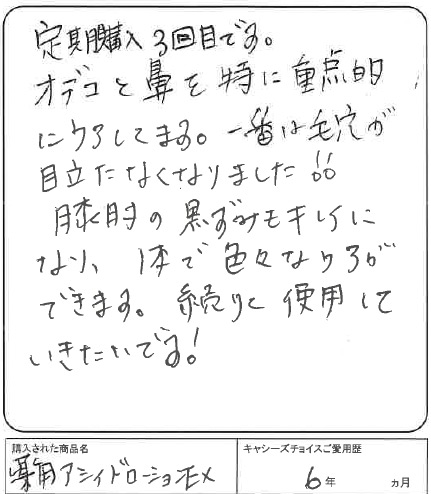 定期購入3回目です。
オデコと鼻を特に重点的
にケアしてます。一番は毛穴が
目立たなくなりました!!
膝肘の黒ずみもキレイに
なり、1本で色々なケアが
できます。続けて使用して
いきたいです!
購入された商品名
薬用アシィドローションEX
キャシーズチョイスご愛用歴
6年 ヵ月